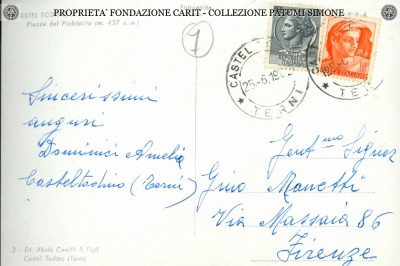 PROPRIETA' FONDAZIONE CARIT - COLLEZIONE PATUMI SIMONE
Piazza del Plebiscito (m. 437 s. m.)
7
CASTEL
25-6.19
TERNI
TERNI
ITALIANE
Sincerissimi
auguri
Dominici Amelia
Casteltodino (Terni)
Gent mo Signor
Gino Manetti
Via Massaia 86
Firenze
3 - Ed. Abele Camilli & Figli
Castel Todino (Terni)